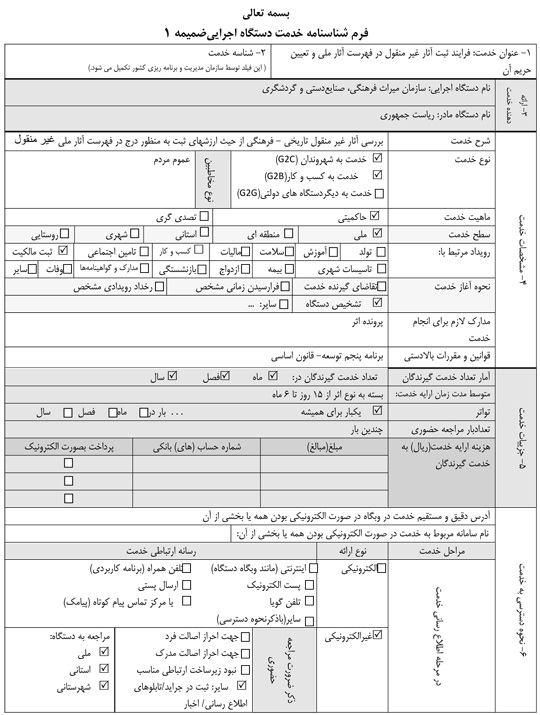 بسمه تعالی
فرم شناسنامه خدمت دستگاه اجرایی ضمیمه ۱
۱- عنوان خدمت: فرایند ثبت آثار غیر منقول در فهرست آثار ملی و تعیین
حریم آن
۲- شناسه خدمت
( این فیلد توسط سازمان مدیریت و برنامه ریزی کشور تکمیل می شود.)
۳- ارائه
دهنده خدمت
نام دستگاه اجرایی: سازمان میراث فرهنگی، صنایع‌دستی و گردشگری
نام دستگاه مادر: ریاست جمهوری
۴- مشخصات خدمت
شرح خدمت
بررسی آثار غیر منقول تاریخی - فرهنگی از حیث ارزشهای ثبت به منظور درج در فهرست آثار ملی غیر منقول
نوع خدمت
☑ خدمت به شهروندان (G2C)
☑ خدمت به کسب و کار(G2B)
☐ خدمت به دیگردستگاه های دولتی(G2G)
نوع مخاطبین
عموم مردم
ماهیت خدمت
☑ حاکمیتی
☐ تصدی گری
سطح خدمت
☑ ملی
☐ منطقه ای
☐ استانی
☐ شهری
☐ روستایی
رویداد مرتبط با:
☐ تولد
☐ آموزش
☐ سلامت
☐ مالیات
☐ کسب و کار
☐ تامین اجتماعی
☑ ثبت مالکیت
☐ تاسیسات شهری
☐ بیمه
☐ ازدواج
☐ بازنشستگی
☐ مدارک و گواهینامه‌ها
☐ وفات
☐ سایر
نحوه آغاز خدمت
☐ تقاضای گیرنده خدمت
☐ فرارسیدن زمانی مشخص
☐ رخداد رویدادی مشخص
☑ تشخیص دستگاه
☐ سایر: ...
مدارک لازم برای انجام
خدمت
پرونده اثر
قوانین و مقررات بالادستی
برنامه پنجم توسعه- قانون اساسی
۵- جزییات خدمت
آمار تعداد خدمت گیرندگان
تعداد خدمت گیرندگان در: ☑ ماه ☑ فصل ☑ سال
متوسط مدت زمان ارایه خدمت:
بسته به نوع اثر از ۱۵ روز تا ۶ ماه
تواتر
☑ یکبار برای همیشه
... بار در: ☐ ماه ☐ فصل ☐ سال
تعدادبار مراجعه حضوری
چندین بار
هزینه ارایه خدمت(ریال) به
خدمت گیرندگان
مبلغ(مبالغ)
شماره حساب (های) بانکی
پرداخت بصورت الکترونیک
☐
☐
☐
۶- نحوه دسترسی به خدمت
آدرس دقیق و مستقیم خدمت در وبگاه در صورت الکترونیکی بودن همه یا بخشی از آن
نام سامانه مربوط به خدمت در صورت الکترونیکی بودن همه یا بخشی از آن:
مراحل خدمت
نوع ارائه
رسانه ارتباطی خدمت
در مرحله اطلاع رسانی خدمت
☐ الکترونیکی
☐ اینترنتی (مانند وبگاه دستگاه)
☐ تلفن همراه (برنامه کاربردی)
☐ پست الکترونیک
☐ ارسال پستی
☐ تلفن گویا
☐ یا مرکز تماس پیام کوتاه (پیامک)
☐ سایر(باذکرنحوه دسترسی)
☑ غیرالکترونیکی
ذکر ضرورت مراجعه
حضوری
☐ جهت احراز اصالت فرد
☐ جهت احراز اصالت مدرک
☐ نبود زیرساخت ارتباطی مناسب
☑ سایر: ثبت در جراید/تابلوهای
اطلاع رسانی/ اخبار
مراجعه به دستگاه:
☑ ملی
☑ استانی
☑ شهرستانی